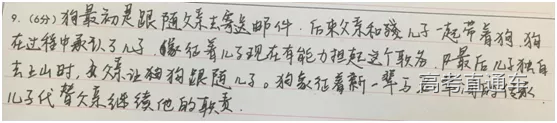 9.(6分)狗最初是跟随父亲去寄送邮件.后来父亲和我儿子一起带着狗.狗
在过程中承认了儿子.象征着儿子现在有能力担起这个职务.只最后儿子独自
去上山时,父亲让狗狗跟随儿子。狗象征着新一辈与
儿子代替父亲继续他的职责.
高考直通车